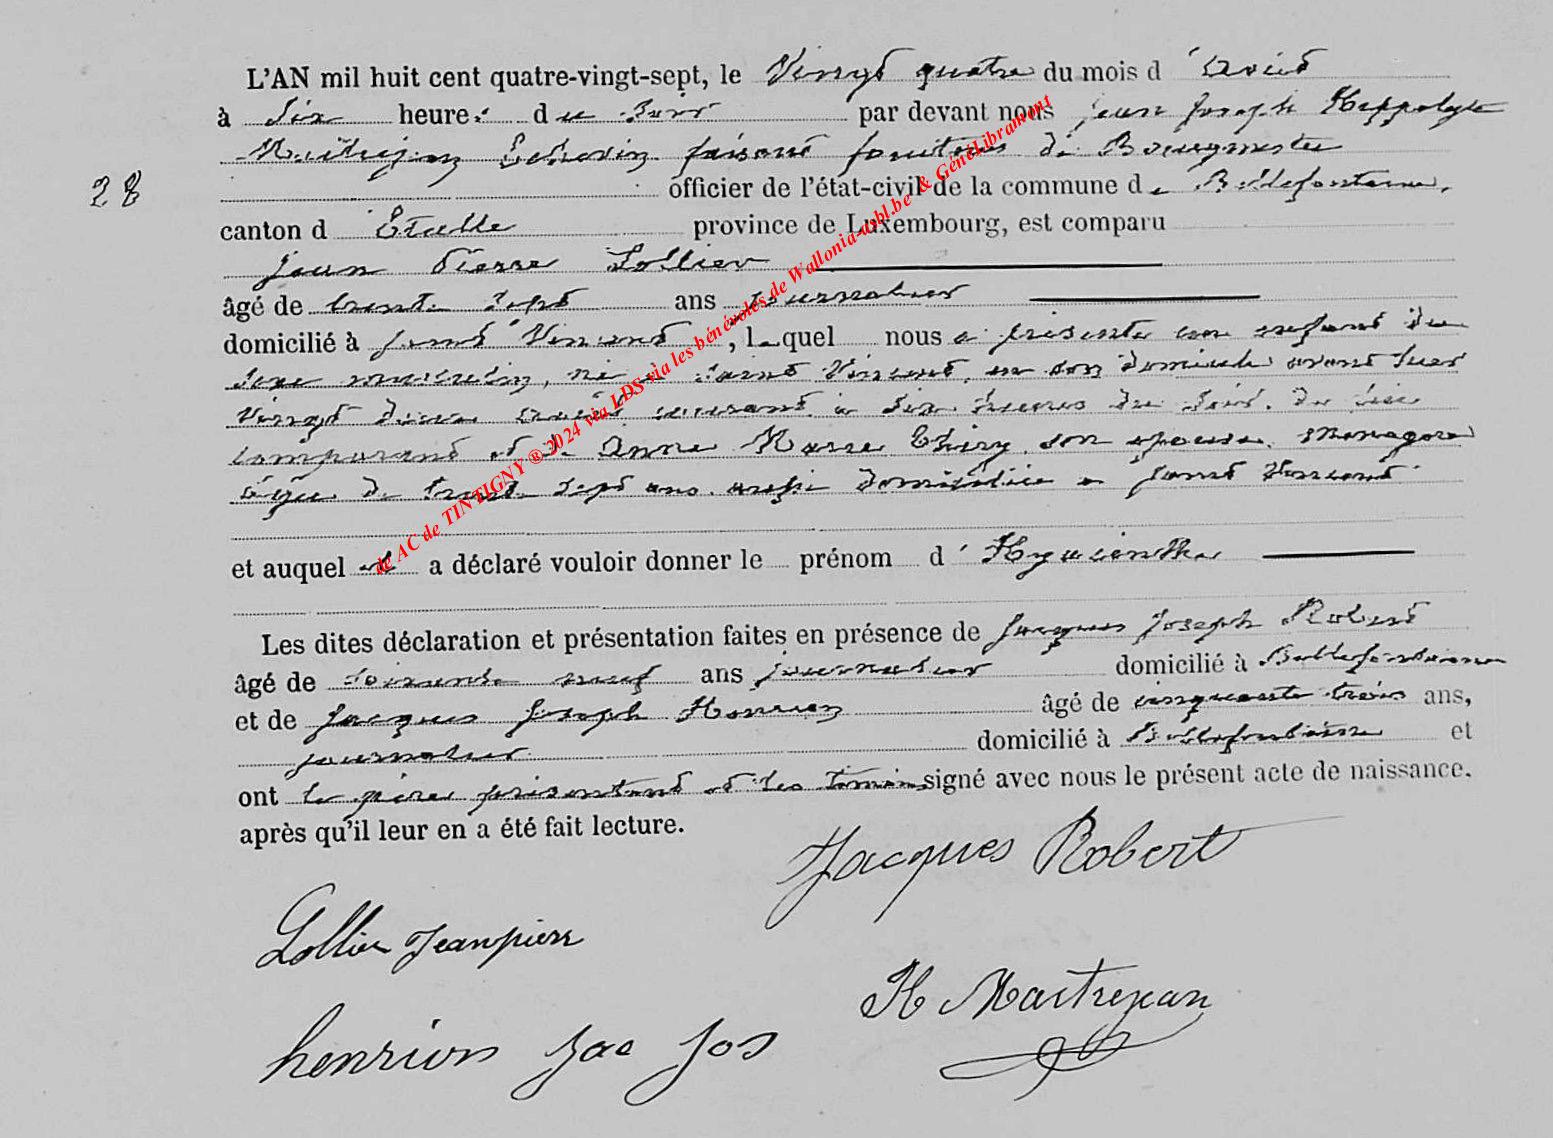 L'AN mil huit cent quatre-vingt-sept, le Vingt quatre du mois d'Août
à Six heures du Soir par devant nous jean joseph Hippolyte
Maitrejean Echevin faisant fonctions de Bourgmestre
28
officier de l'état-civil de la commune de Bellefontaine,
canton d'Etalle province de Luxembourg, est comparu
jean Pierre Lollier
âgé de trente sept ans journalier
domicilié à saint Vincent, lequel nous a présenté un enfant du
sexe masculin, né à Saint Vincent, en son domicile avant hier
Vingt deux août courant à six heures du soir, de lui
comparant et de Anne Marie Thiry son épouse, Menagère
âgée de trente sept ans aussi domiciliée à saint Vincent
et auquel il a déclaré vouloir donner le prénom d'Hyacinthe
Les dites déclaration et présentation faites en présence de Jacques Joseph Robert
âgé de soixante neuf ans journalier domicilié à Bellefontaine
et de Jacques Joseph Henrion âgé de cinquante trois ans,
journalier domicilié à Bellefontaine et
ont le père présentant et les témoins signé avec nous le présent acte de naissance.
après qu'il leur en a été fait lecture.
Jacques Robert
Lollier Jeanpierre
H Maitrejean
henrion Jac Jos
de AC de TINTIGNY ® 2024 via LDS via les bénévoles de Wallonia-asbl.be & GénéLibramont